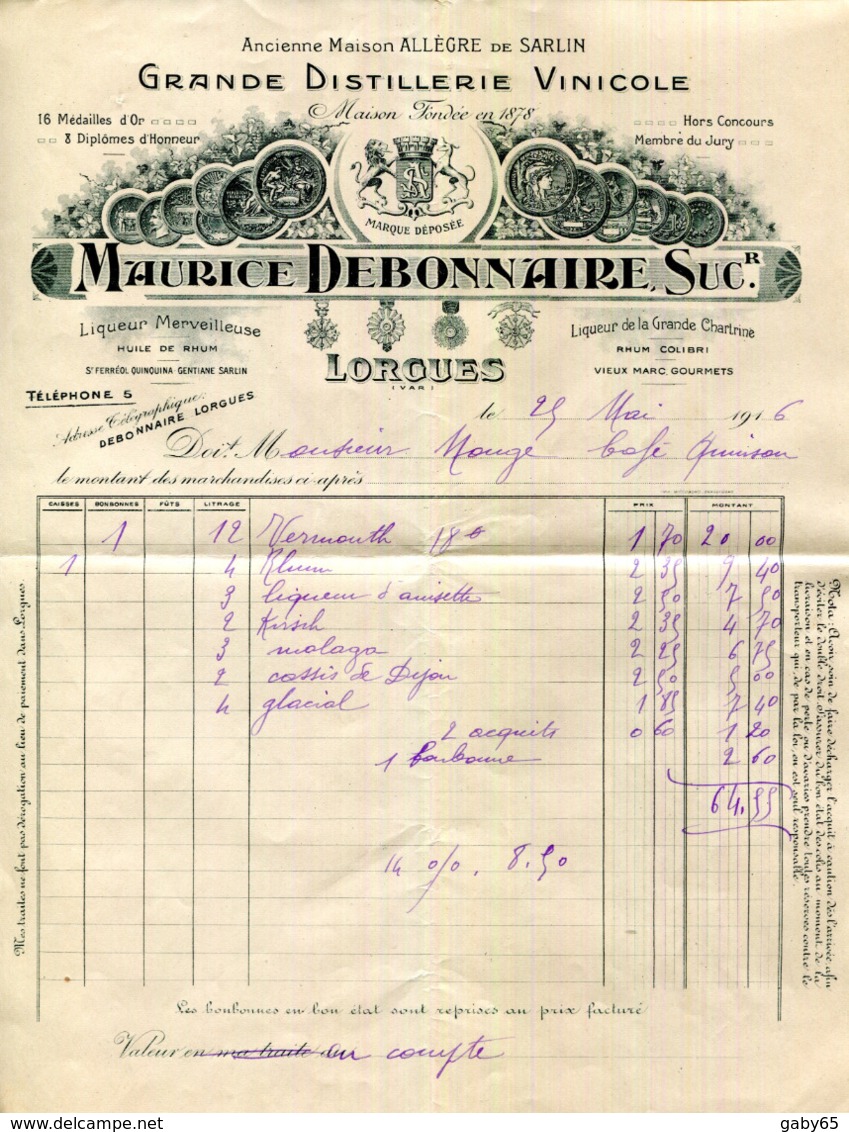 Ancienne Maison ALLÈGRE DE SARLIN
GRANDE DISTILLERIE VINICOLE
Maison Fondée en 1878
16 Médailles d'Or
8 Diplômes d'Honneur
Hors Concours
Membre du Jury
MARQUE DÉPOSÉE
MAURICE DEBONNAIRE, SUC.R
Liqueur Merveilleuse
HUILE DE RHUM
ST FERRÉOL QUINQUINA - GENTIANE SARLIN
Liqueur de la Grande Chartrine
RHUM COLIBRI
VIEUX MARC, GOURMETS
LORGUES
(VAR)
TÉLÉPHONE 5
Adresse Télégraphique:
DEBONNAIRE LORGUES
le 25 Mai 1916
Doit Monsieur Rougé Café Quinson
le montant des marchandises ci-après
CAISSES BONBONNES FÛTS LITRAGE PRIX MONTANT
1 12 Vermouth 18° 1 70 20 00
1 4 Rhum 2 35 9 40
3 liqueur d'anisette 2 50 7 50
2 Kirsch 2 35 4 70
3 malaga 2 25 6 75
2 cassis de Dijon 2 50 5 00
4 glacial 1 85 7 40
2 acquits 0 60 1 20
1 bonbonne 2 60
64.55
14 0/0. 8.50
Les bonbonnes en bon état sont reprises au prix facturé
Valeur en ma traite au en compte
Mes traites ne font pas dérogation au lieu de paiement dans Lorgues.
Nota: Avoir soin de faire décharger l'acquit à caution dès l'arrivée afin
d'éviter le double droit. S'assurer du bon état des colis au moment de la
livraison et en cas de perte ou d'avaries prendre toutes réserves contre le
transporteur qui, de par la loi, en est seul responsable.
gaby65